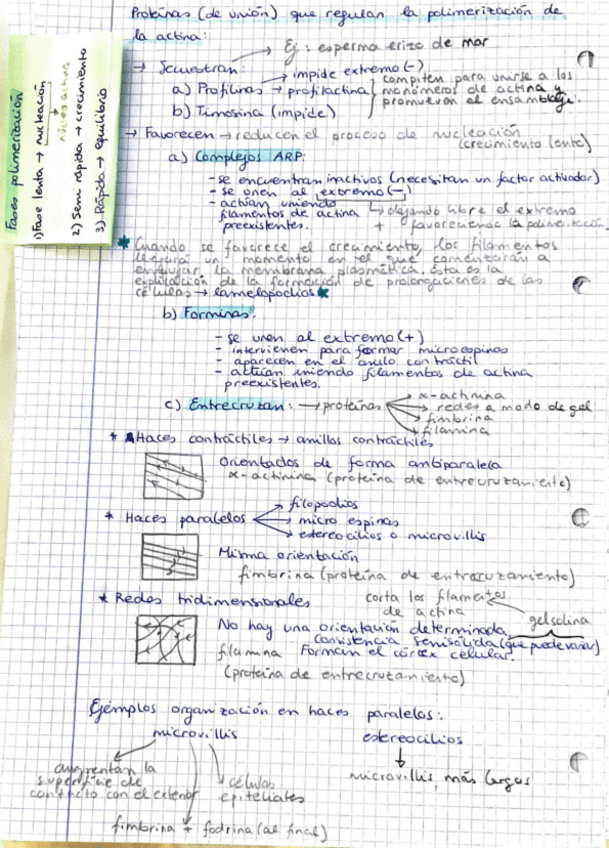 Proteínas (de unión) que regulan la polimerización de
la actina:
→ Secuestran: → Ej: esperma erizo de mar
a) Profilinas → profilactina → impide extremo (-)
compiten para unirse a los
monómeros de actina y
promueven el ensamblaje.
b) Timosina (impide)
→ Favorecen → reducen el proceso de nucleación
(crecimiento lento)
a) Complejos ARP:
- se encuentran inactivos (necesitan un factor activador)
- se unen al extremo (-)
↳ dejando libre el extremo
+ favoreciendo la polimerización.
- actúan uniendo
filamentos de actina
preexistentes.
* Cuando se favorece el crecimiento, los filamentos
llegará un momento en el que comenzarán a
empujar la membrana plasmática. Esta es la
explicación de la formación de prolongaciones de las
células → lamelopodios *
b) Forminas.
- se unen al extremo (+)
- intervienen para formar microespinas
- aparecen en el anillo contráctil
- actúan uniendo filamentos de actina
preexistentes.
c) Entrecruzan: → proteínas
→ α-actinina
→ redes a modo de gel
→ fimbrina
→ filamina
* Haces contráctiles → anillos contráctiles
Orientados de forma antiparalela
α-actinina (proteína de entrecruzamiento)
* Haces paralelos
→ filopodios
→ micro espinas
→ estereocilios o microvillis
Misma orientación
fimbrina (proteína de entrecruzamiento)
* Redes tridimensionales
corta los filamentos
de actina
gelsolina
No hay una orientación determinada,
consistencia semisólida (que puede variar)
filamina Forman el córtex celular.
(proteína de entrecruzamiento)
Ejemplos organización en haces paralelos:
microvillis
estereocilios
aumentan la
superficie de
contacto con el exterior
células
epiteliales
microvillis más largos
fimbrina + fodrina (al final)
Fases polimerización
1) Fase lenta → nucleación
núcleos actina
2) Semi rápida → crecimiento
3) Rápida → equilibrio